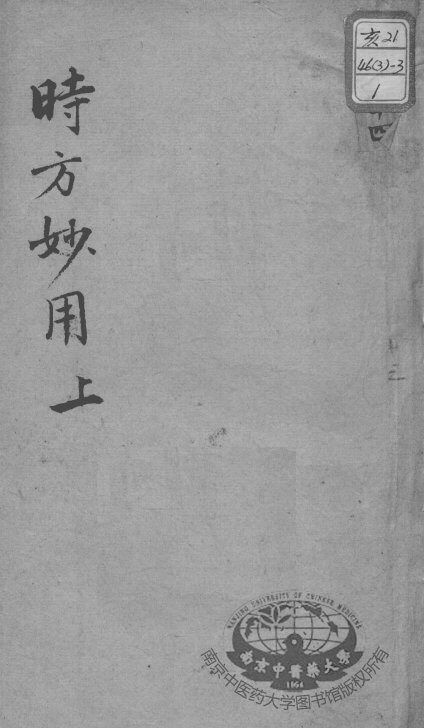 時方妙用上
亥21
46(3)-3
1
四
三
NANJING UNIVERSITY OF CHINESE MEDICINE
南京中醫藥大學
1954
南京中医药大学图书馆版权所有